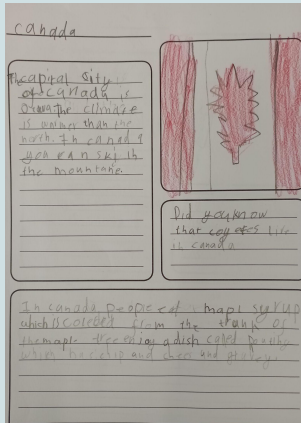 canada
The capiral sity
of canada is
Otawa. The climate
is warmer than the
north. In canada
you can ski in
the mountains
Did you know
that coyotes live
in canada
In canada people eat maple syrup
which is colected from the trunk of
the maple tree enjoy a dish called
which has chip and chees and